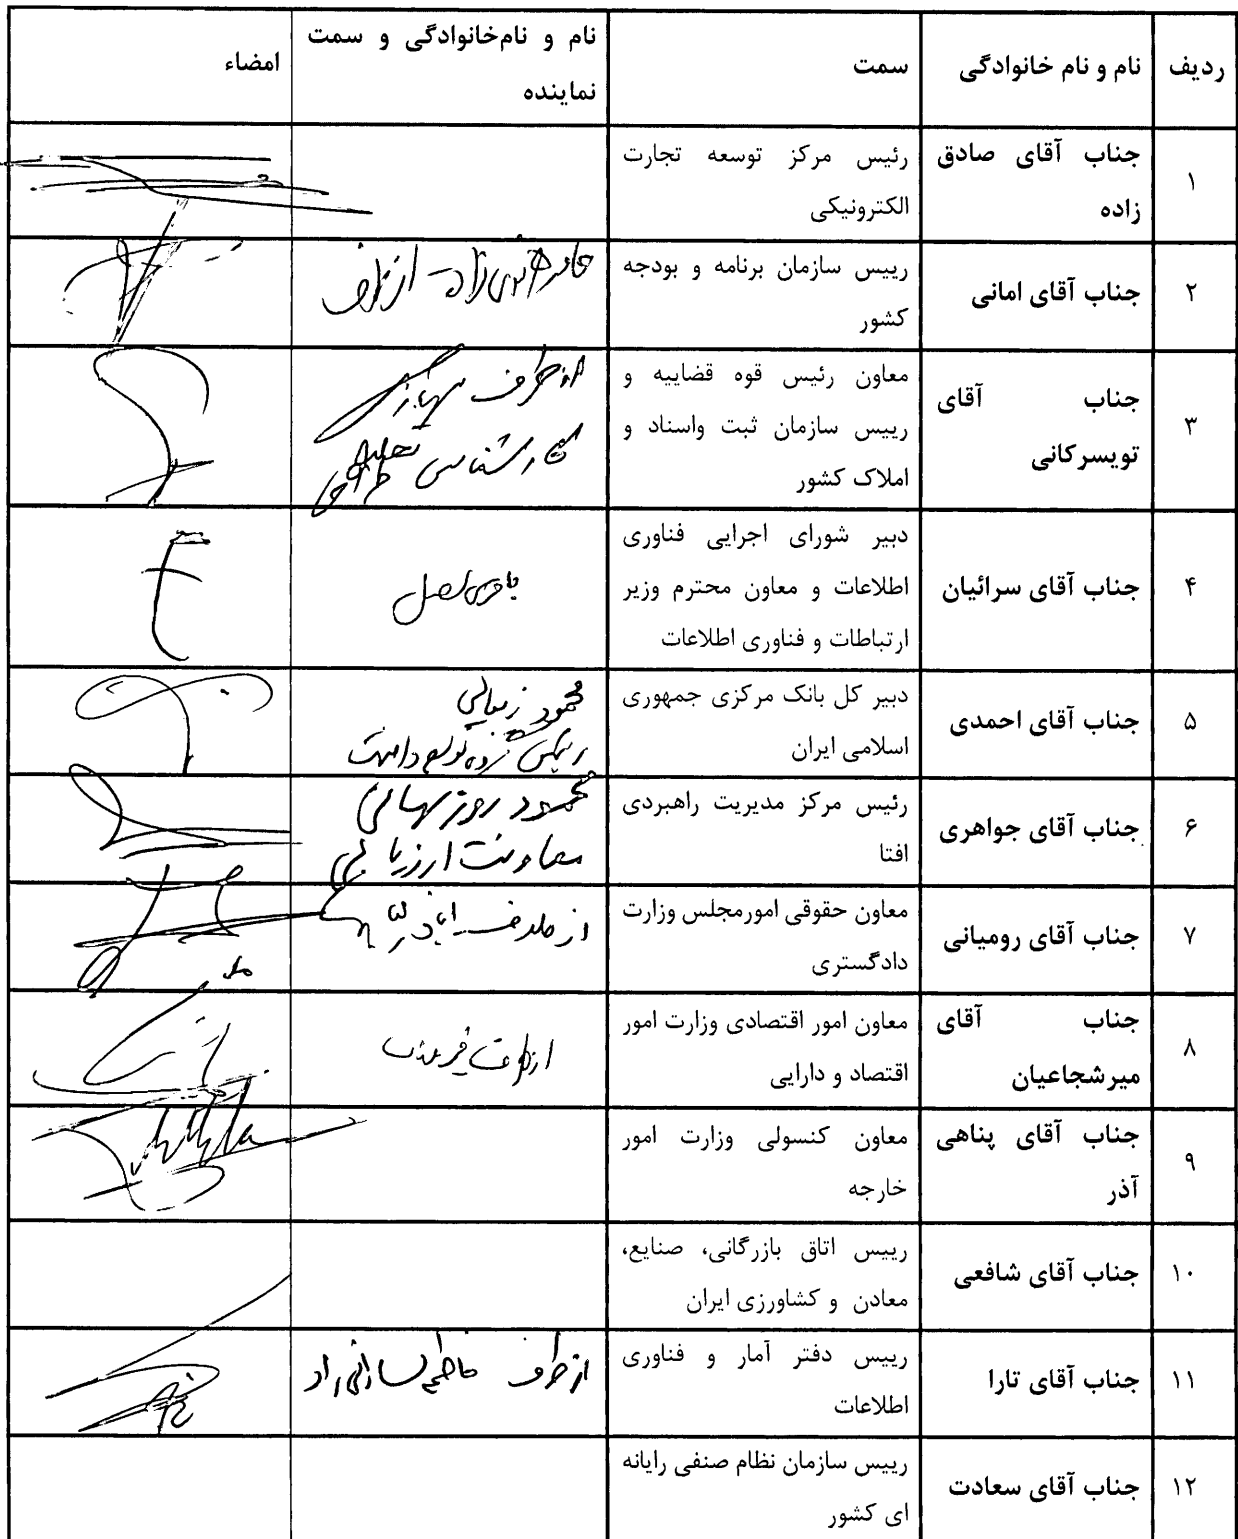 ردیف
نام و نام خانوادگی
سمت
نام و نام‌خانوادگی و سمت
نماینده
امضاء
۱
جناب آقای صادق
زاده
رئیس مرکز توسعه تجارت
الکترونیکی
۲
جناب آقای امانی
رییس سازمان برنامه و بودجه
کشور
از طرف
۳
جناب آقای
تویسرکانی
معاون رئیس قوه قضاییه و
رییس سازمان ثبت واسناد و
املاک کشور
از طرف
کارشناس تحلیل
۴
جناب آقای سرائیان
دبیر شورای اجرایی فناوری
اطلاعات و معاون محترم وزیر
ارتباطات و فناوری اطلاعات
۵
جناب آقای احمدی
دبیر کل بانک مرکزی جمهوری
اسلامی ایران
محمود
۶
جناب آقای جواهری
رئیس مرکز مدیریت راهبردی
افتا
محمود روزبهانی
معاونت ارزیابی
۷
جناب آقای رومیانی
معاون حقوقی امورمجلس وزارت
دادگستری
از طرف
۸
جناب آقای
میرشجاعیان
معاون امور اقتصادی وزارت امور
اقتصاد و دارایی
از طرف
۹
جناب آقای پناهی
آذر
معاون کنسولی وزارت امور
خارجه
۱۰
جناب آقای شافعی
رییس اتاق بازرگانی، صنایع،
معادن و کشاورزی ایران
۱۱
جناب آقای تارا
رییس دفتر آمار و فناوری
اطلاعات
از طرف
۱۲
جناب آقای سعادت
رییس سازمان نظام صنفی رایانه
ای کشور